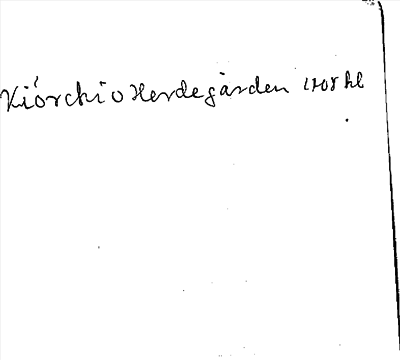 Kiörchio Herdegården 1708 hl